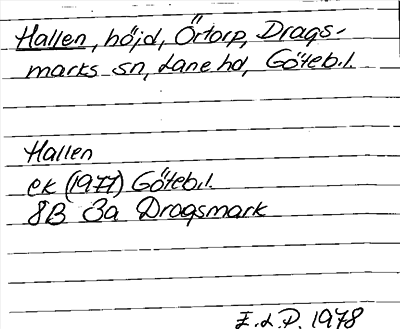 Hallen, höjd, Örtorp, Drags-
marks sn, Lane hd, Göteb.l.
Hallen
ek (1977) Göteb.l.
8B 3a Dragsmark
E.L.P. 1978